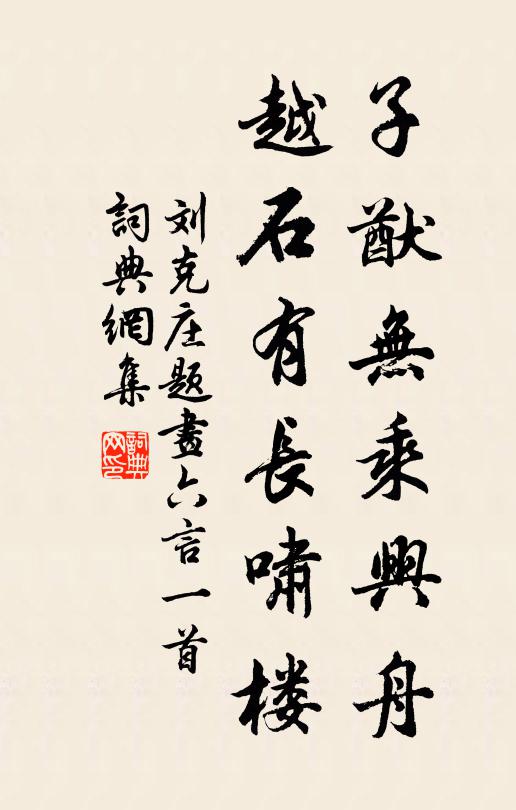 子猷無乘興舟
越石有長嘯楼
刘克庄題畫六言一首
詞典網集
詞典
网印